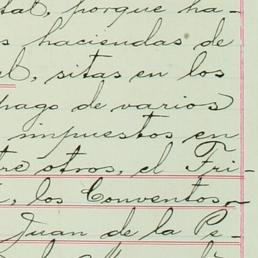 tal, porque ha-
s haciendas de
l, sitas en los
pago de varios
impuestos en
tre otros, el Tri-
, los Conventos
Juan de la Pe-